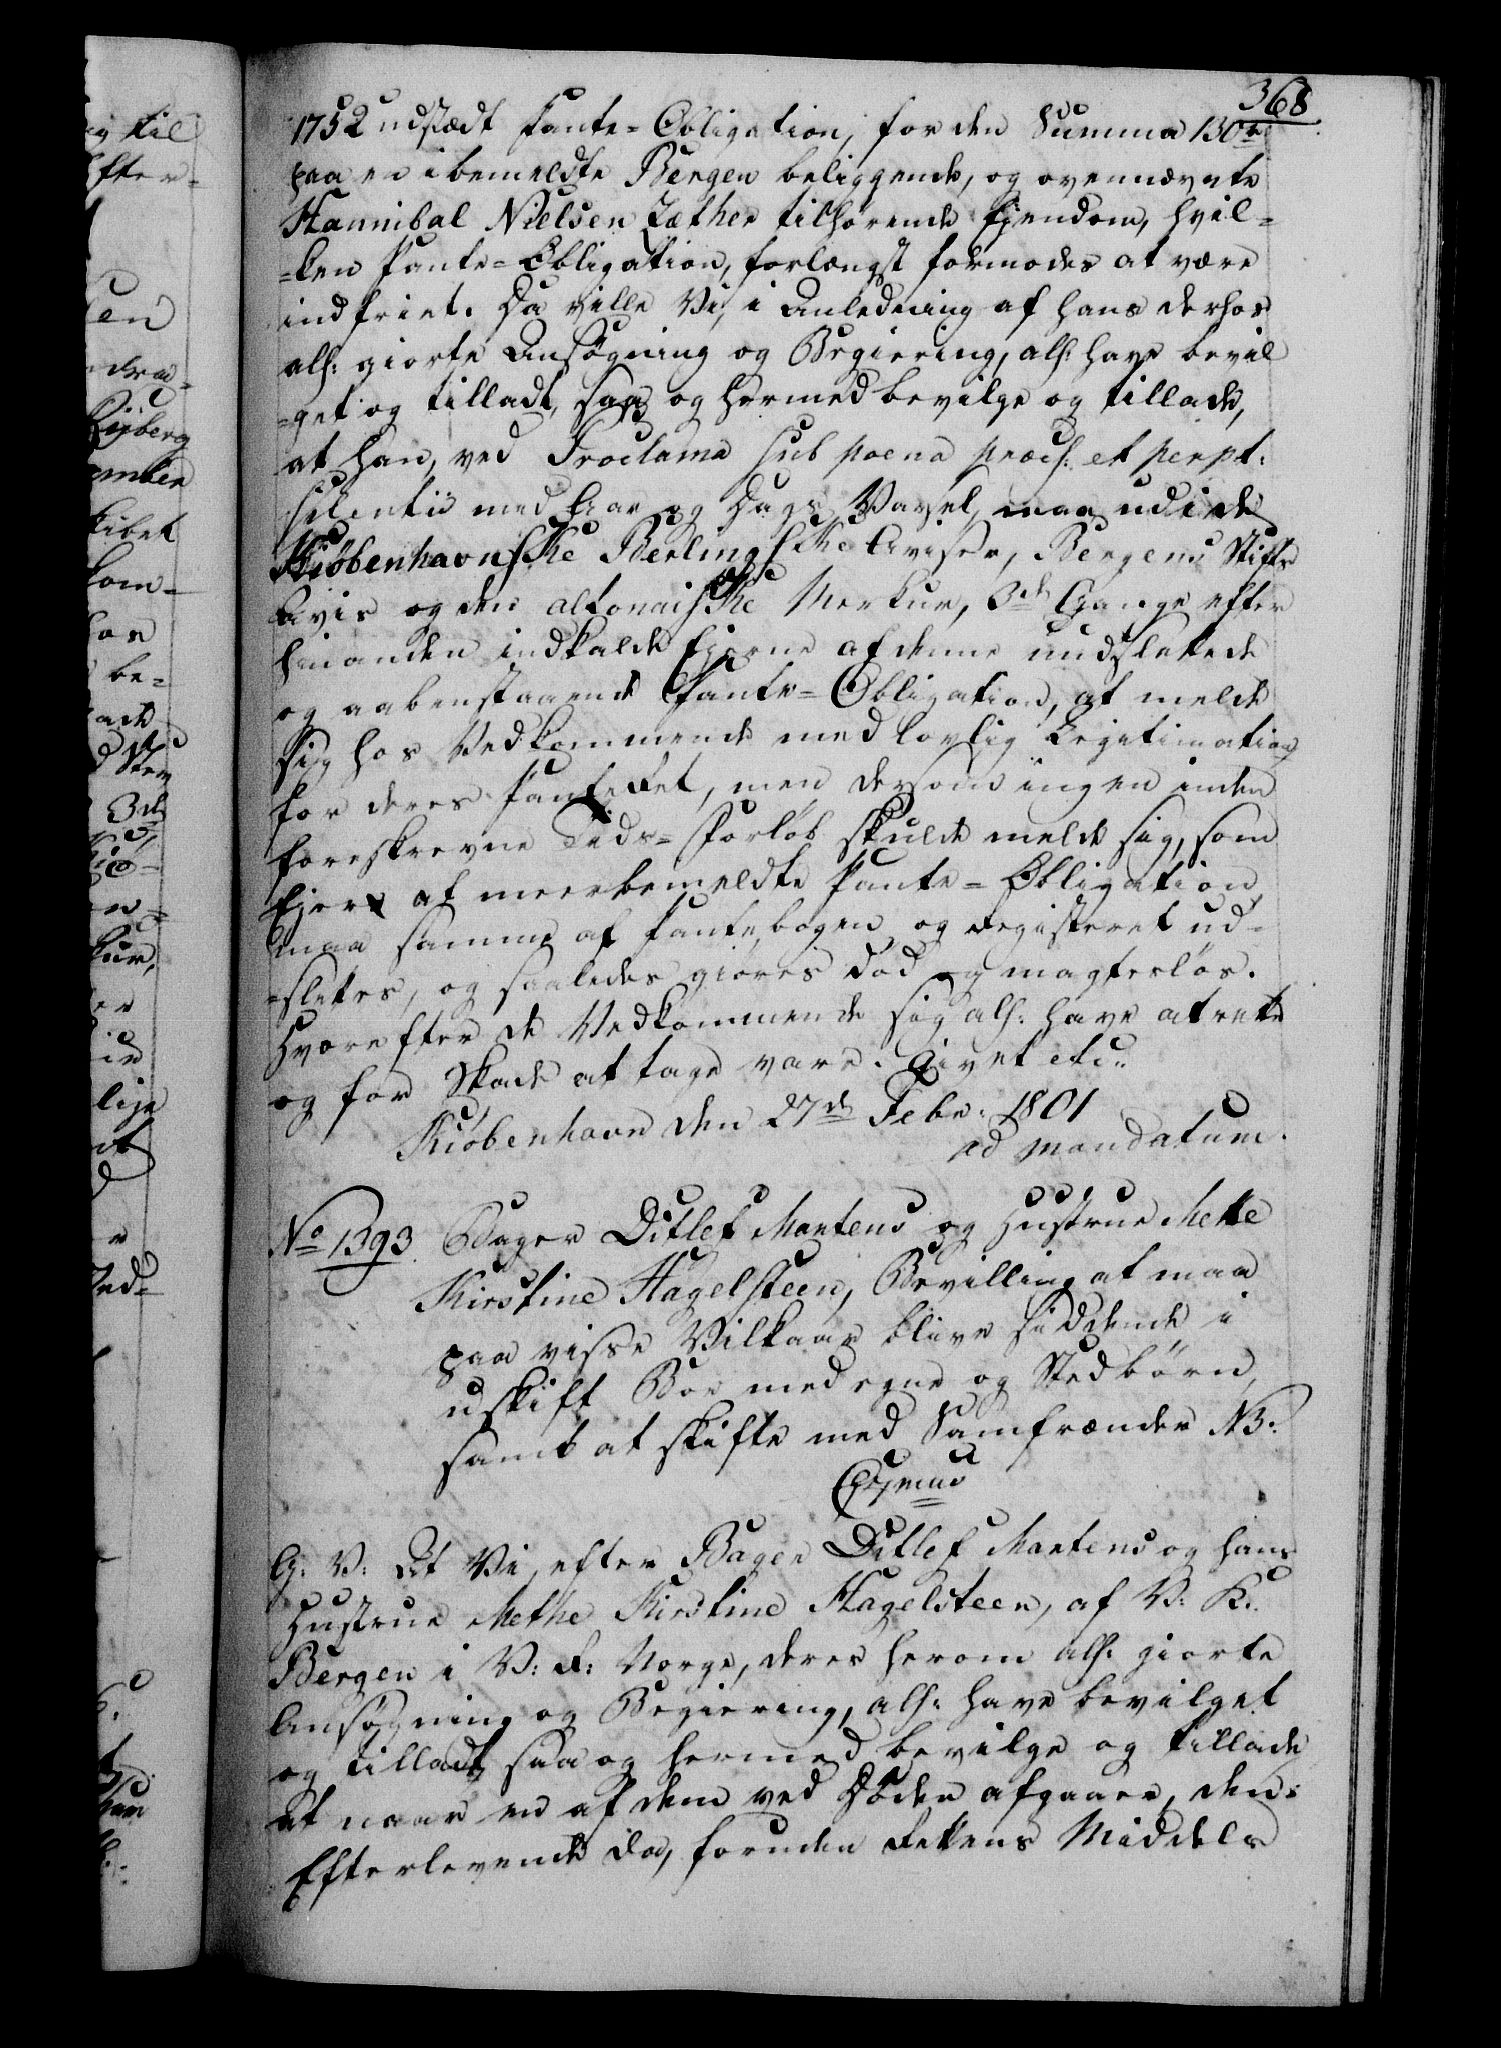 368
1752 udstædt Pante=Obligation, for den Summa 130 rd
paa en i bemeldte Bergen beliggende, og ovennævnte
Hannibal Nielsen Sæther tilhørende Ejendom, hvil-
=ken Pante=Obligation, forlængst formodes at være
indfriet. Da ville Vi, i Anledning af hans derhos
alh: giorte Ansøgning og Begiering, alh: have bevil
=get og tilladt, saa og hermed bevilge og tillade,
at han, ved Proclama sub poena præcl: et perpt:
silentii med Aar og Dags Varsel, maa udi de
Kiøbenhavnske Berlingske Aviser, Bergens Stifts
Avis og den altonaiske Merkur, 3de Gange efter
hinanden indkalde Ejerne af denne uudslettede
og aabenstaaende Pante=Obligation, at melde
sig hos Vedkommende med lovlig Legitimation
for deres PanteRet, men dersom ingen inden
foreskrevne Tids=Forløb skulde melde sig, som
Ejer af meerbemeldte Pante=Obligation,
maa samme af Pantebogen og Registeret ud-
=slettes, og saaledes giøres død og magtesløs.
Hvorefter de Vedkommende sig alh: have at rette
og for Skade at tage vare. Givet etc:
Kiøbenhavn den 27de Febr: 1801
ad mandatum.
No 1393. Bager Ditlef Martens og Hustrue Mette
Kirstine Hagelsteen, Bevilling at maa
paa visse Vilkaar blive siddende i
uskift Boe med egne og Stedbørn,
samt at skifte med Samfrænder NB:
G: V: At Vi, efter Bager Ditlef Martens og hans
Hustrue Methe Kirstine Hagelsteen, af V: K:
Bergen i V: R: Norge, deres herom alh: giorte
Ansøgning og Begiering, alh: have bevilget
og tilladt, saa og hermed bevilge og tillade
at naar en af dem ved Døden afgaaer, den
Efterlevende da, foruden Rettens Middels